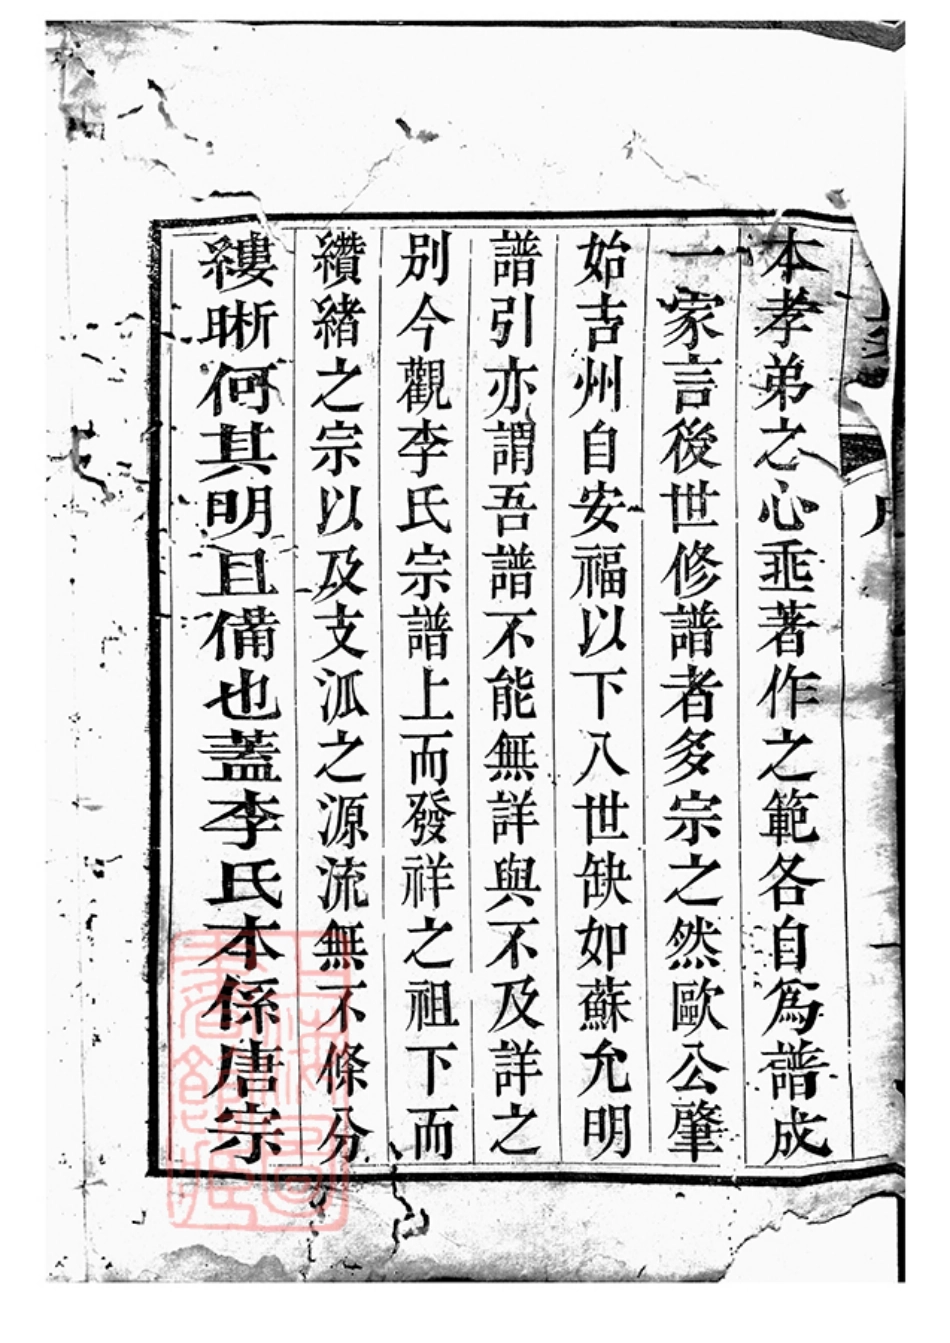 本孝弟之心垂著作之範各自爲譜成
一家言後世修譜者多宗之然歐公肇
始吉州自安福以下八世缺如蘇允明
譜引亦謂吾譜不能無詳與不及詳之
別今觀李氏宗譜上而發祥之祖下而
纘緒之宗以及支泒之源流無不條分
縷晰何其明且備也蓋李氏本係唐宗